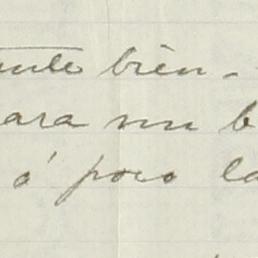 ente bien-
ara un b
ó poco la